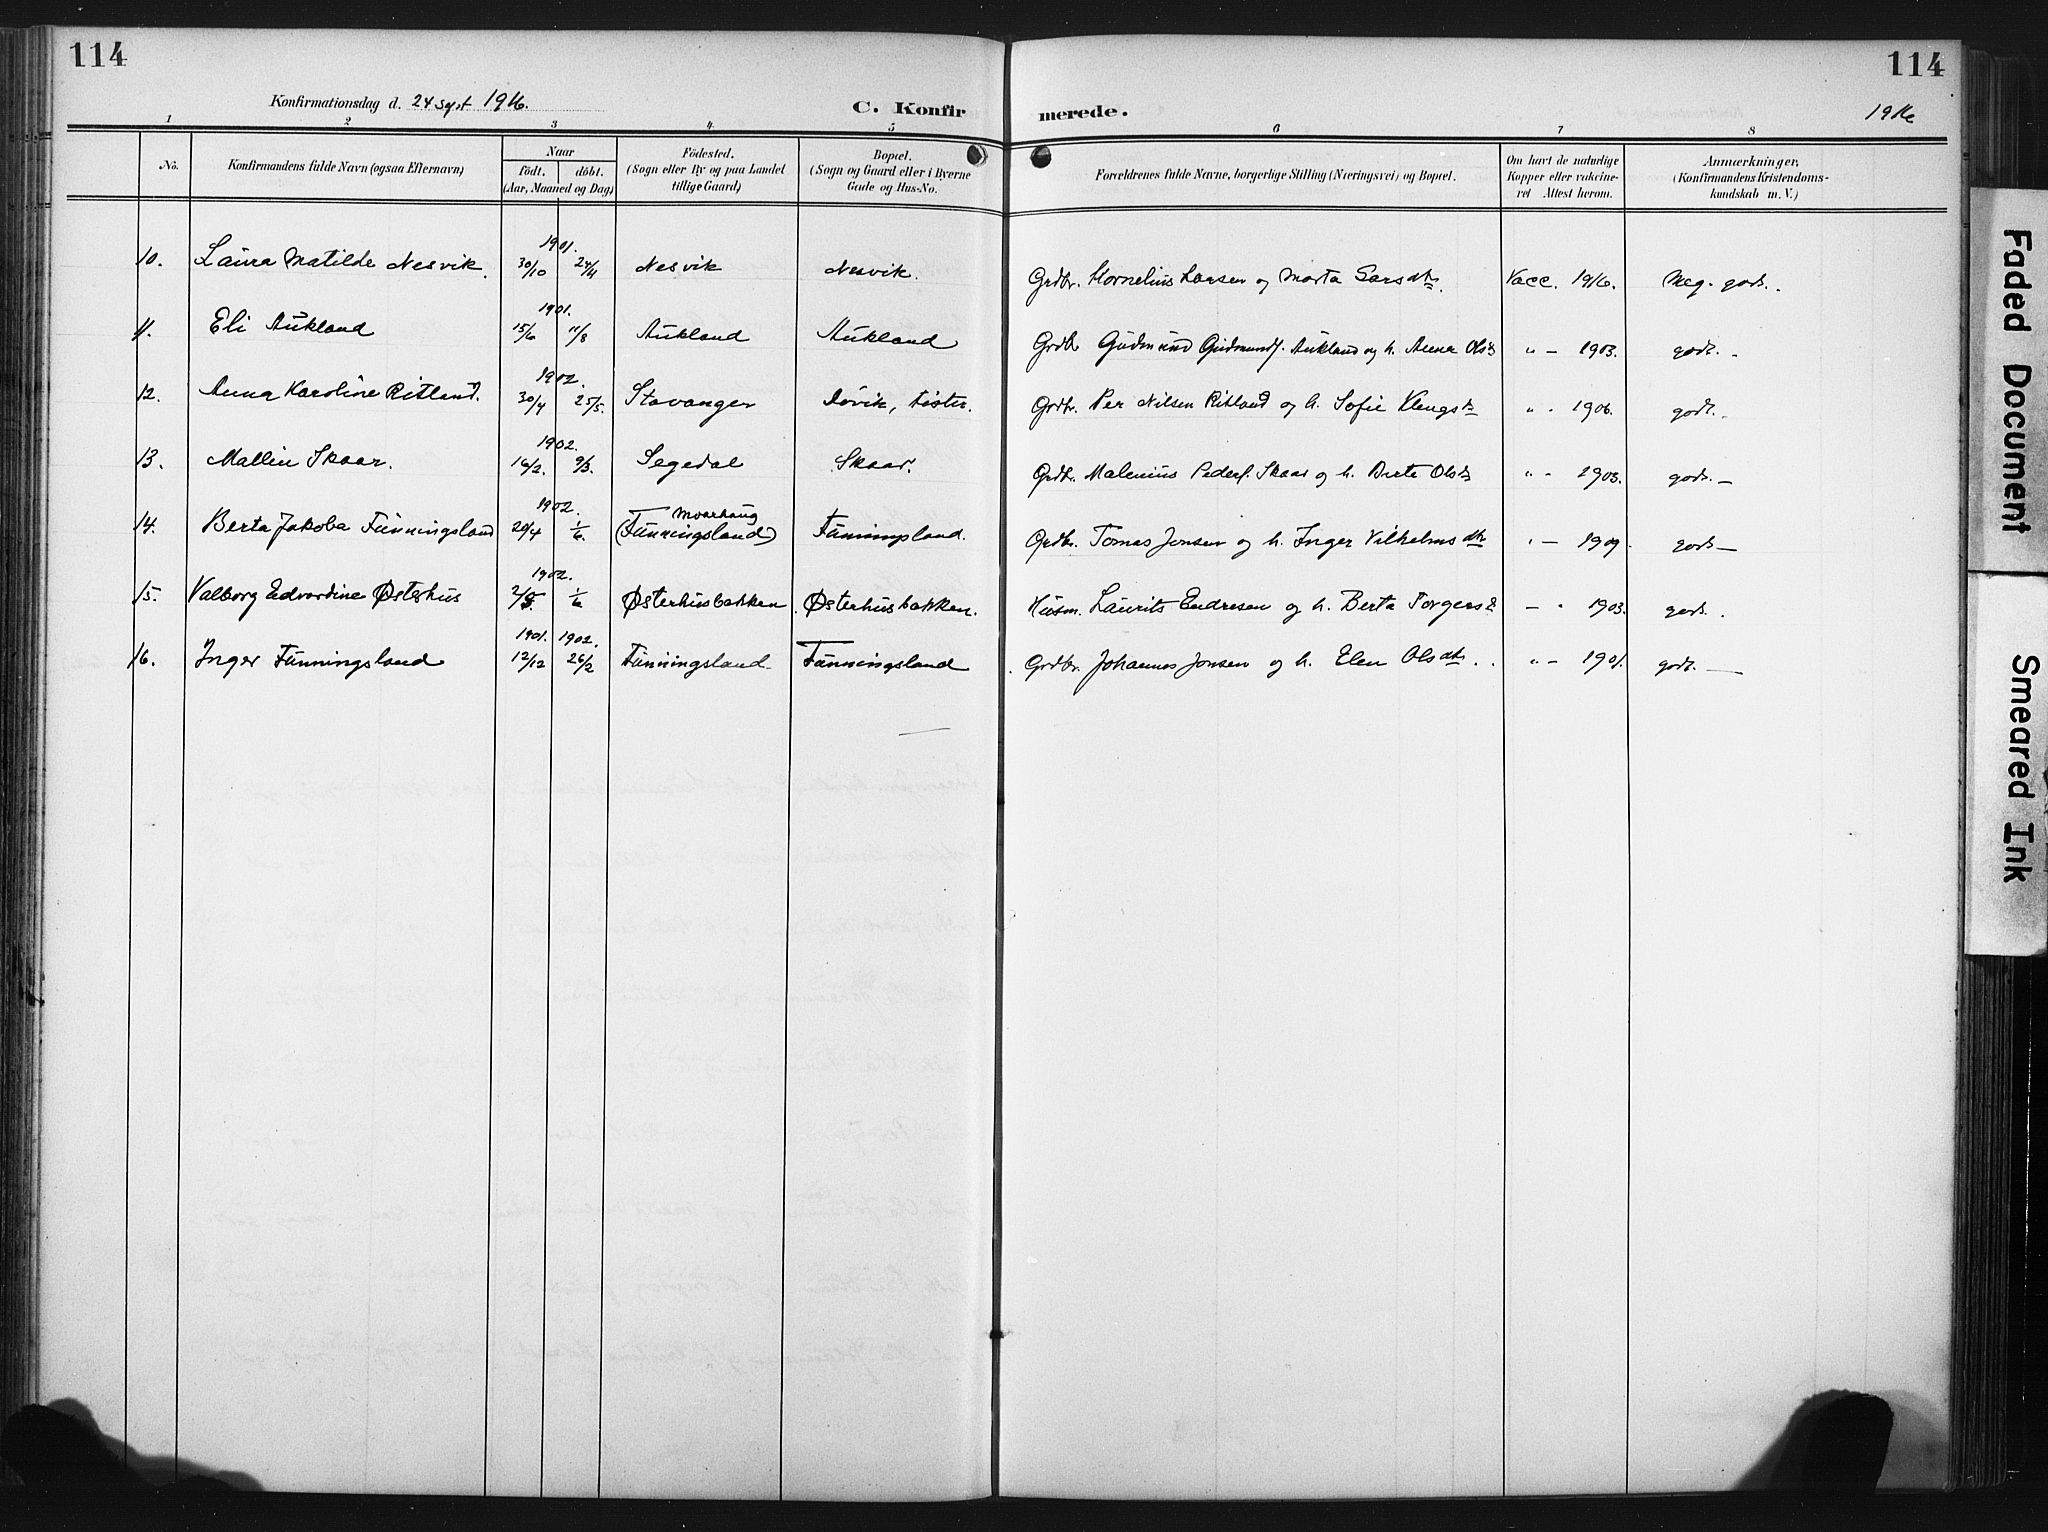 114
114
Konfirmationsdag d. 24 sept 1916.
C. Konfirmerede.
1916
1 2 3 4 5 6 7 8
No.
Konfirmandens fulde Navn (ogsaa Efternavn)
Naar
födt. döbt.
(Aar, Maaned og Dag)
Födested.
(Sogn eller By og paa Landet
tillige Gaard)
Bopæl.
(Sogn og Gaard eller i Byerne
Gade og Hus-No.
Forældrenes fulde Navne, borgerlige Stilling (Næringsvei) og Bopæl.
Om havt de naturlige
Kopper eller vakcine-
ret Attest herom.
Anmærkninger,
(Konfirmandens Kristendoms-
kundskab m. V.)
1901.
10. Laura Matilde Nesvik. 30/10 24/11 Nesvik Nesvik. Grdbr. Kornelius Larsen og Marta Larsdtr. Vacc. 1916. Meg. godt.
1901.
11. Eli Aukland 15/6 11/8 Aukland Aukland Grdb Gudmund Gudmunds. Aukland og h. Anna Olsd " - 1903. godt. -
1902.
12. Anna Karoline Ritland. 30/4 25/5. Stavanger Grdbr. Per Nilsen Ritland og h. Sofie " - 1906. godt. -
1902.
13. Mallin Skaar. 16/2. 9/3. Segedal Skaar. Grdbr. Malenius Peders. Skaar og h. Berte Olsd " - 1903. godt. -
1902. Moarhaug
14. Berta Jakoba Funningsland 20/4 1/6. (Funningsland) Funningsland. Grdbr. Tomas Jonsen og h. Inger Vilhelmsdtr " - 1909. godt -
1902.
15. Valborg Edvardine Østerhus 2/5. 1/6 Østerhusbakken. Østerhusbakken. Husm. Laurits Endresen og h. Berta Torgersd - " 1903. godt.
1901. 1902.
16. Inger Funningsland 12/12 26/2 Funningsland. Funningsland Grdbr. Johannes Jonsen og h. Elen Olsdtr. " - 1901. godt. -
Faded Document
Smeared Ink